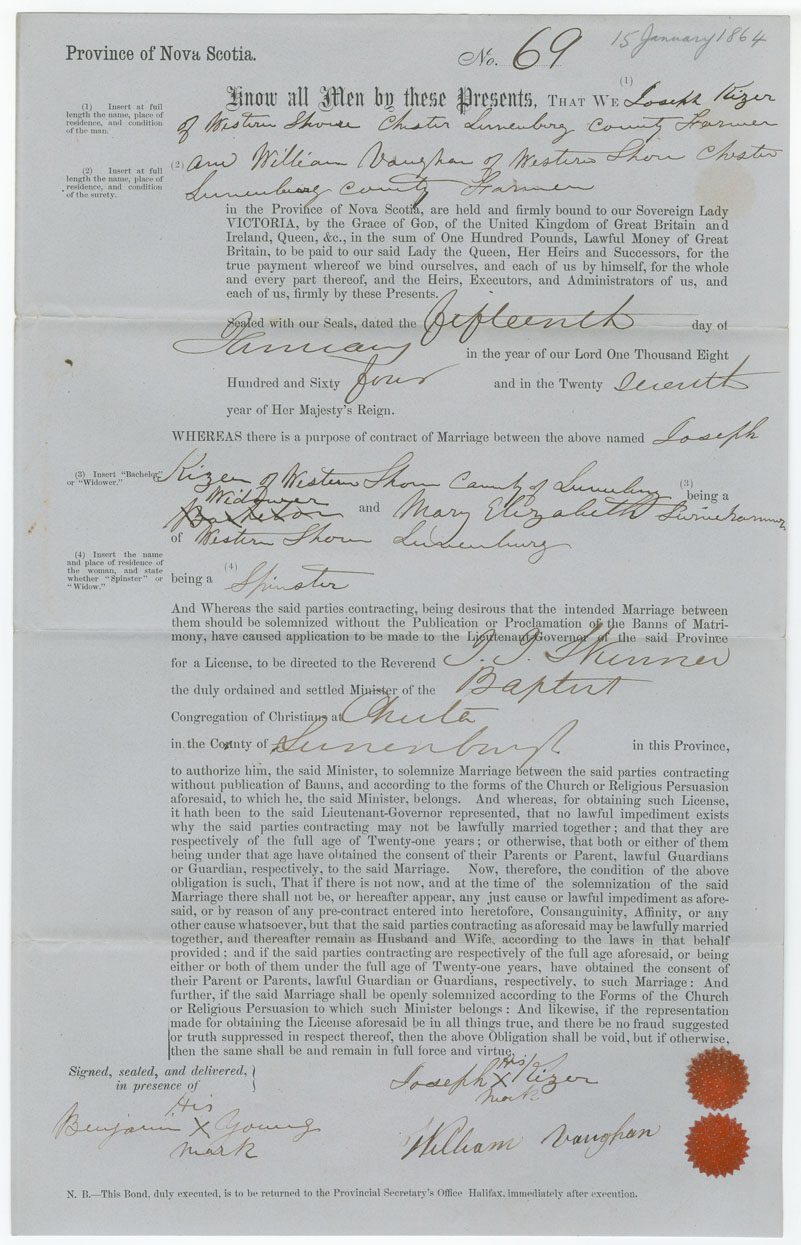 15 January 1864
Province of Nova Scotia.
No. 69
(1)
Know all Men by these Presents, THAT WE Joseph Kizer
(1) Insert at full
length the name, place of
residence, and condition
of the man.
of Western Shore Chester Lunenburg County Farmer
(2) and William Vaughan of Western Shore Chester
(2) Insert at full
length the name, place of
residence, and condition
of the surety.
Lunenburg County Farmer
in the Province of Nova Scotia, are held and firmly bound to our Sovereign Lady
VICTORIA, by the Grace of GOD, of the United Kingdom of Great Britain and
Ireland, Queen, &c., in the sum of One Hundred Pounds, Lawful Money of Great
Britain, to be paid to our said Lady the Queen, Her Heirs and Successors, for the
true payment whereof we bind ourselves, and each of us by himself, for the whole
and every part thereof, and the Heirs, Executors, and Administrators of us, and
each of us, firmly by these Presents.
Sealed with our Seals, dated the fifteenth day of
January in the year of our Lord One Thousand Eight
Hundred and Sixty four and in the Twenty seventh
year of Her Majesty's Reign.
WHEREAS there is a purpose of contract of Marriage between the above named Joseph
(3) Insert "Bachelor"
or "Widower."
Kizer of Western Shore County of Lunenburg (3) being a
Widower
Bachelor and Mary Elizabeth
of Western Shore Lunenburg
(4) Insert the name
and place of residence of
the woman, and state
whether "Spinster" or
"Widow."
(4)
being a Spinster
And Whereas the said parties contracting, being desirous that the intended Marriage between
them should be solemnized without the Publication or Proclamation of the Banns of Matri-
mony, have caused application to be made to the Lieutenant-Governor of the said Province
for a License, to be directed to the Reverend Skinner
the duly ordained and settled Minister of the Baptist
Congregation of Christians at
in the County of Lunenburgh in this Province,
to authorize him, the said Minister, to solemnize Marriage between the said parties contracting
without publication of Banns, and according to the forms of the Church or Religious Persuasion
aforesaid, to which he, the said Minister, belongs. And whereas, for obtaining such License,
it hath been to the said Lieutenant-Governor represented, that no lawful impediment exists
why the said parties contracting may not be lawfully married together; and that they are
respectively of the full age of Twenty-one years; or otherwise, that both or either of them
being under that age have obtained the consent of their Parents or Parent, lawful Guardians
or Guardian, respectively, to the said Marriage. Now, therefore, the condition of the above
obligation is such, That if there is not now, and at the time of the solemnization of the said
Marriage there shall not be, or hereafter appear, any just cause or lawful impediment as afore-
said, or by reason of any pre-contract entered into heretofore, Consanguinity, Affinity, or any
other cause whatsoever, but that the said parties contracting as aforesaid may be lawfully married
together, and thereafter remain as Husband and Wife, according to the laws in that behalf
provided; and if the said parties contracting are respectively of the full age aforesaid, or being
either or both of them under the full age of Twenty-one years, have obtained the consent of
their Parent or Parents, lawful Guardian or Guardians, respectively, to such Marriage: And
further, if the said Marriage shall be openly solemnized according to the Forms of the Church
or Religious Persuasion to which such Minister belongs: And likewise, if the representation
made for obtaining the License aforesaid be in all things true, and there be no fraud suggested
or truth suppressed in respect thereof, then the above Obligation shall be void, but if otherwise,
then the same shall be and remain in full force and virtue.
Signed, sealed, and delivered,
in presence of
His
Joseph X Kizer
mark
His
Benjamin X Young
mark
William Vaughan
N. B.—This Bond, duly executed, is to be returned to the Provincial Secretary's Office Halifax, immediately after execution.